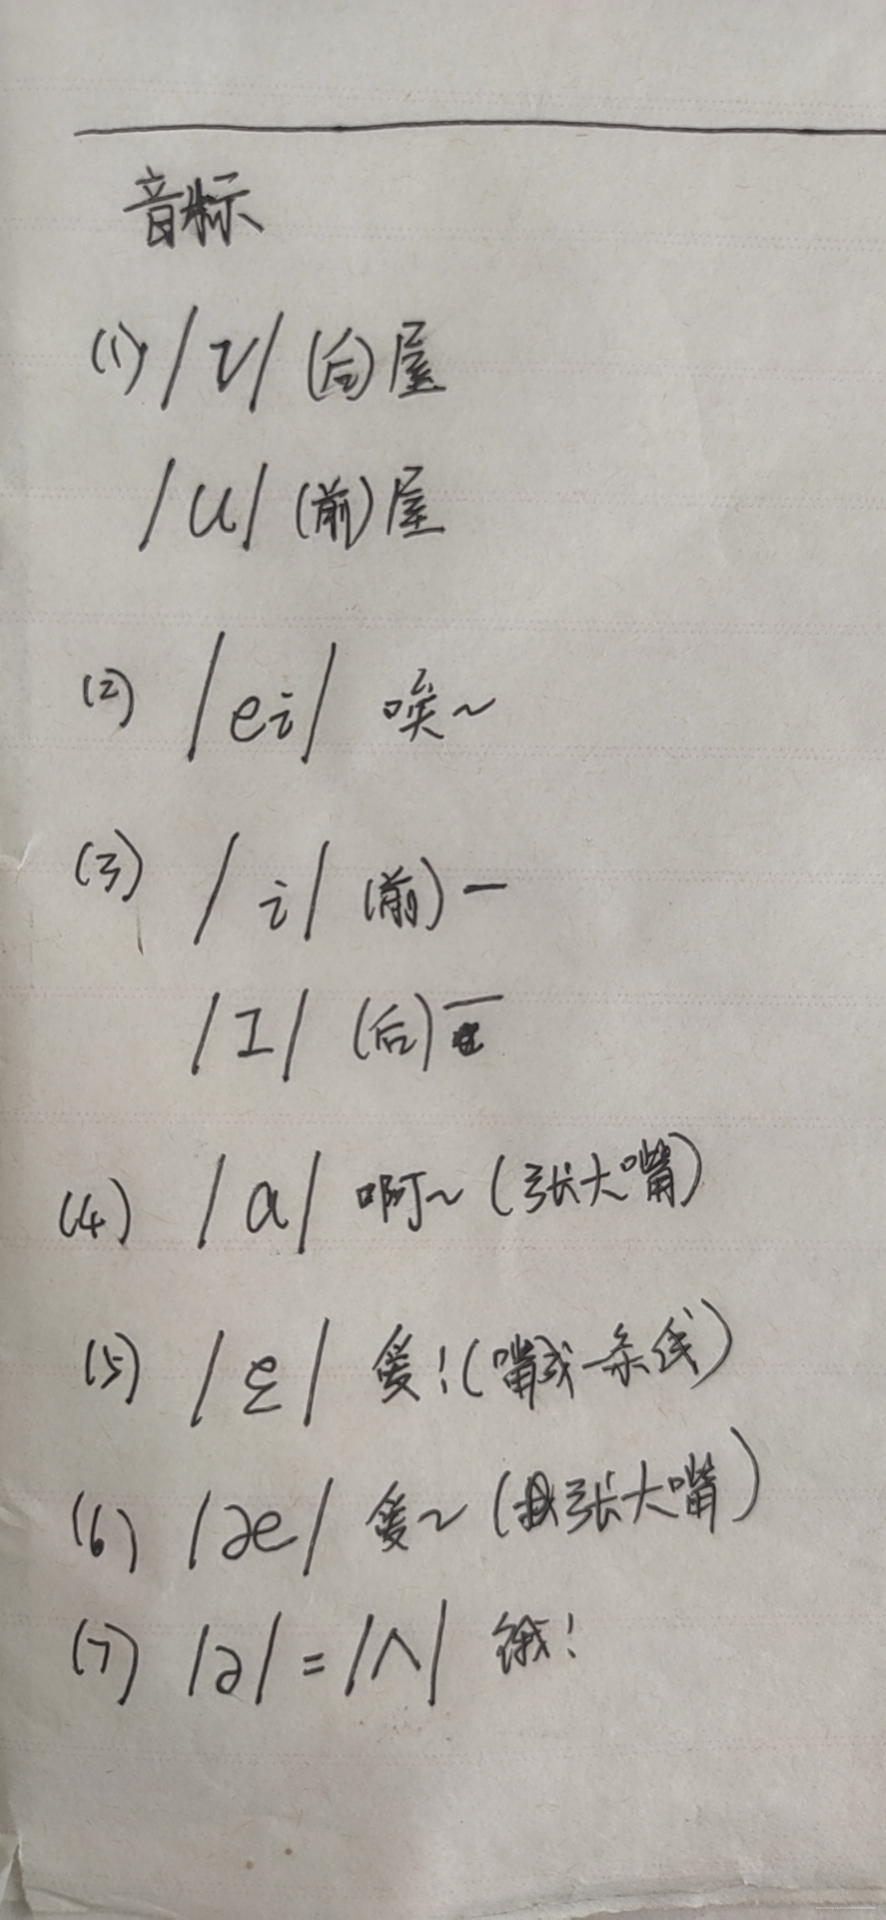 音标
(1) /ʊ/ (后)屋
/u/ (前)屋
(2) /ei/ 唉~
(3) /i/ (前)一
/I/ (后)一
(4) /a/ 啊~(张大嘴)
(5) /ɛ/ 爱!(嘴成一条线)
(6) /æ/ 爱~(张大嘴)
(7) /ə/=/ʌ/ 饿!